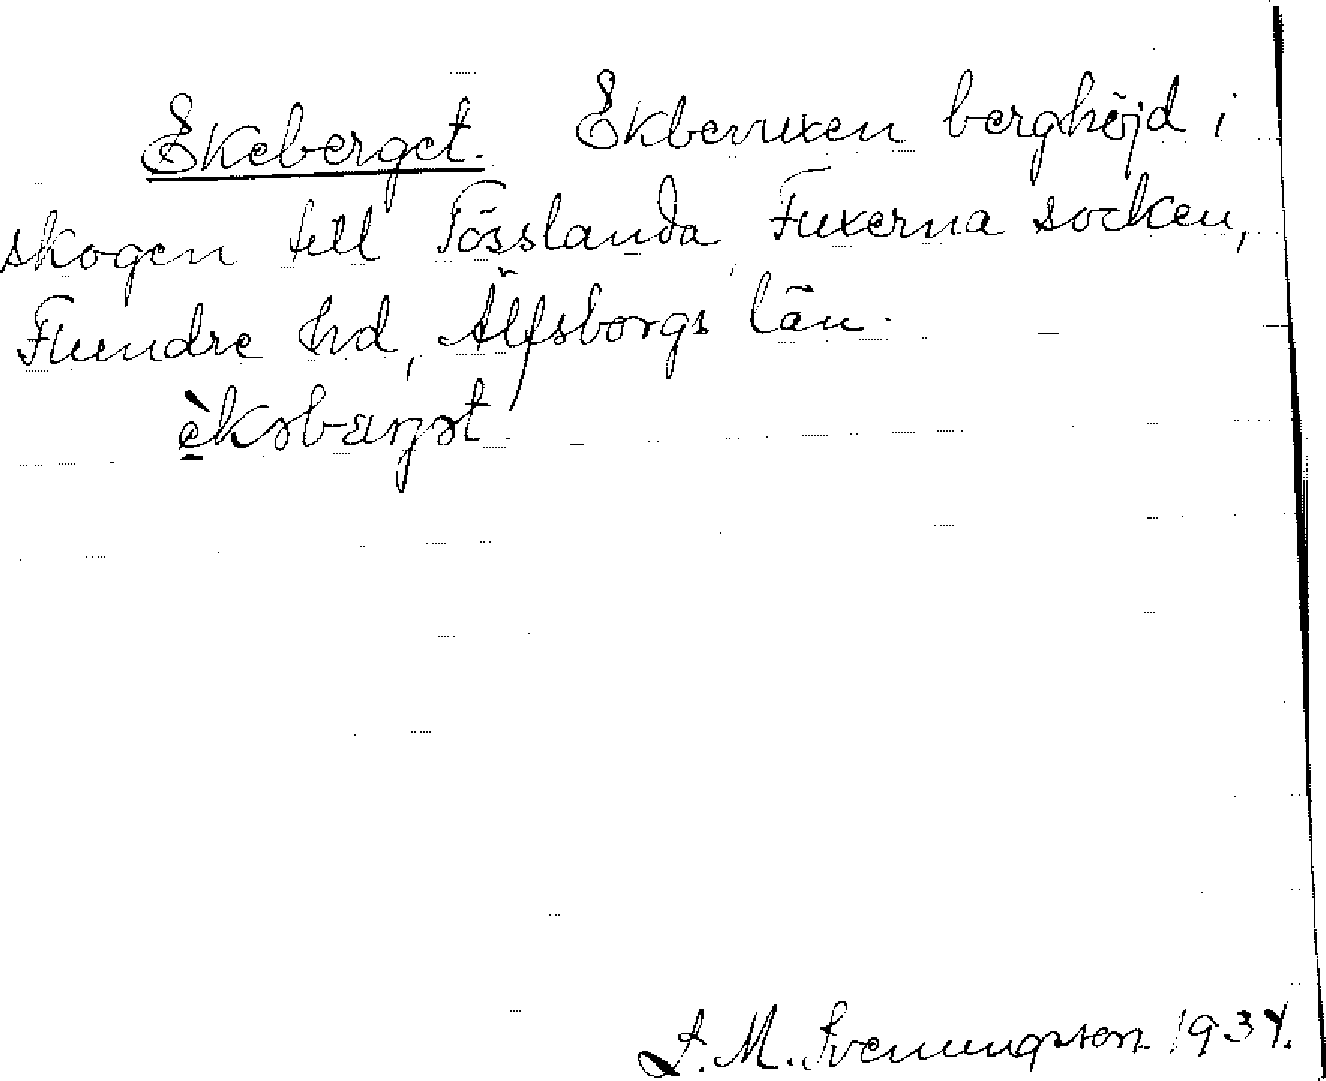 Ekeberget. Ekbevuxen berghöjd i
skogen till Tösslanda, Fuxerna socken,
Flundre hd, Älfsborgs län.
èkəbærjət
J. M. Svenungsson 1934.